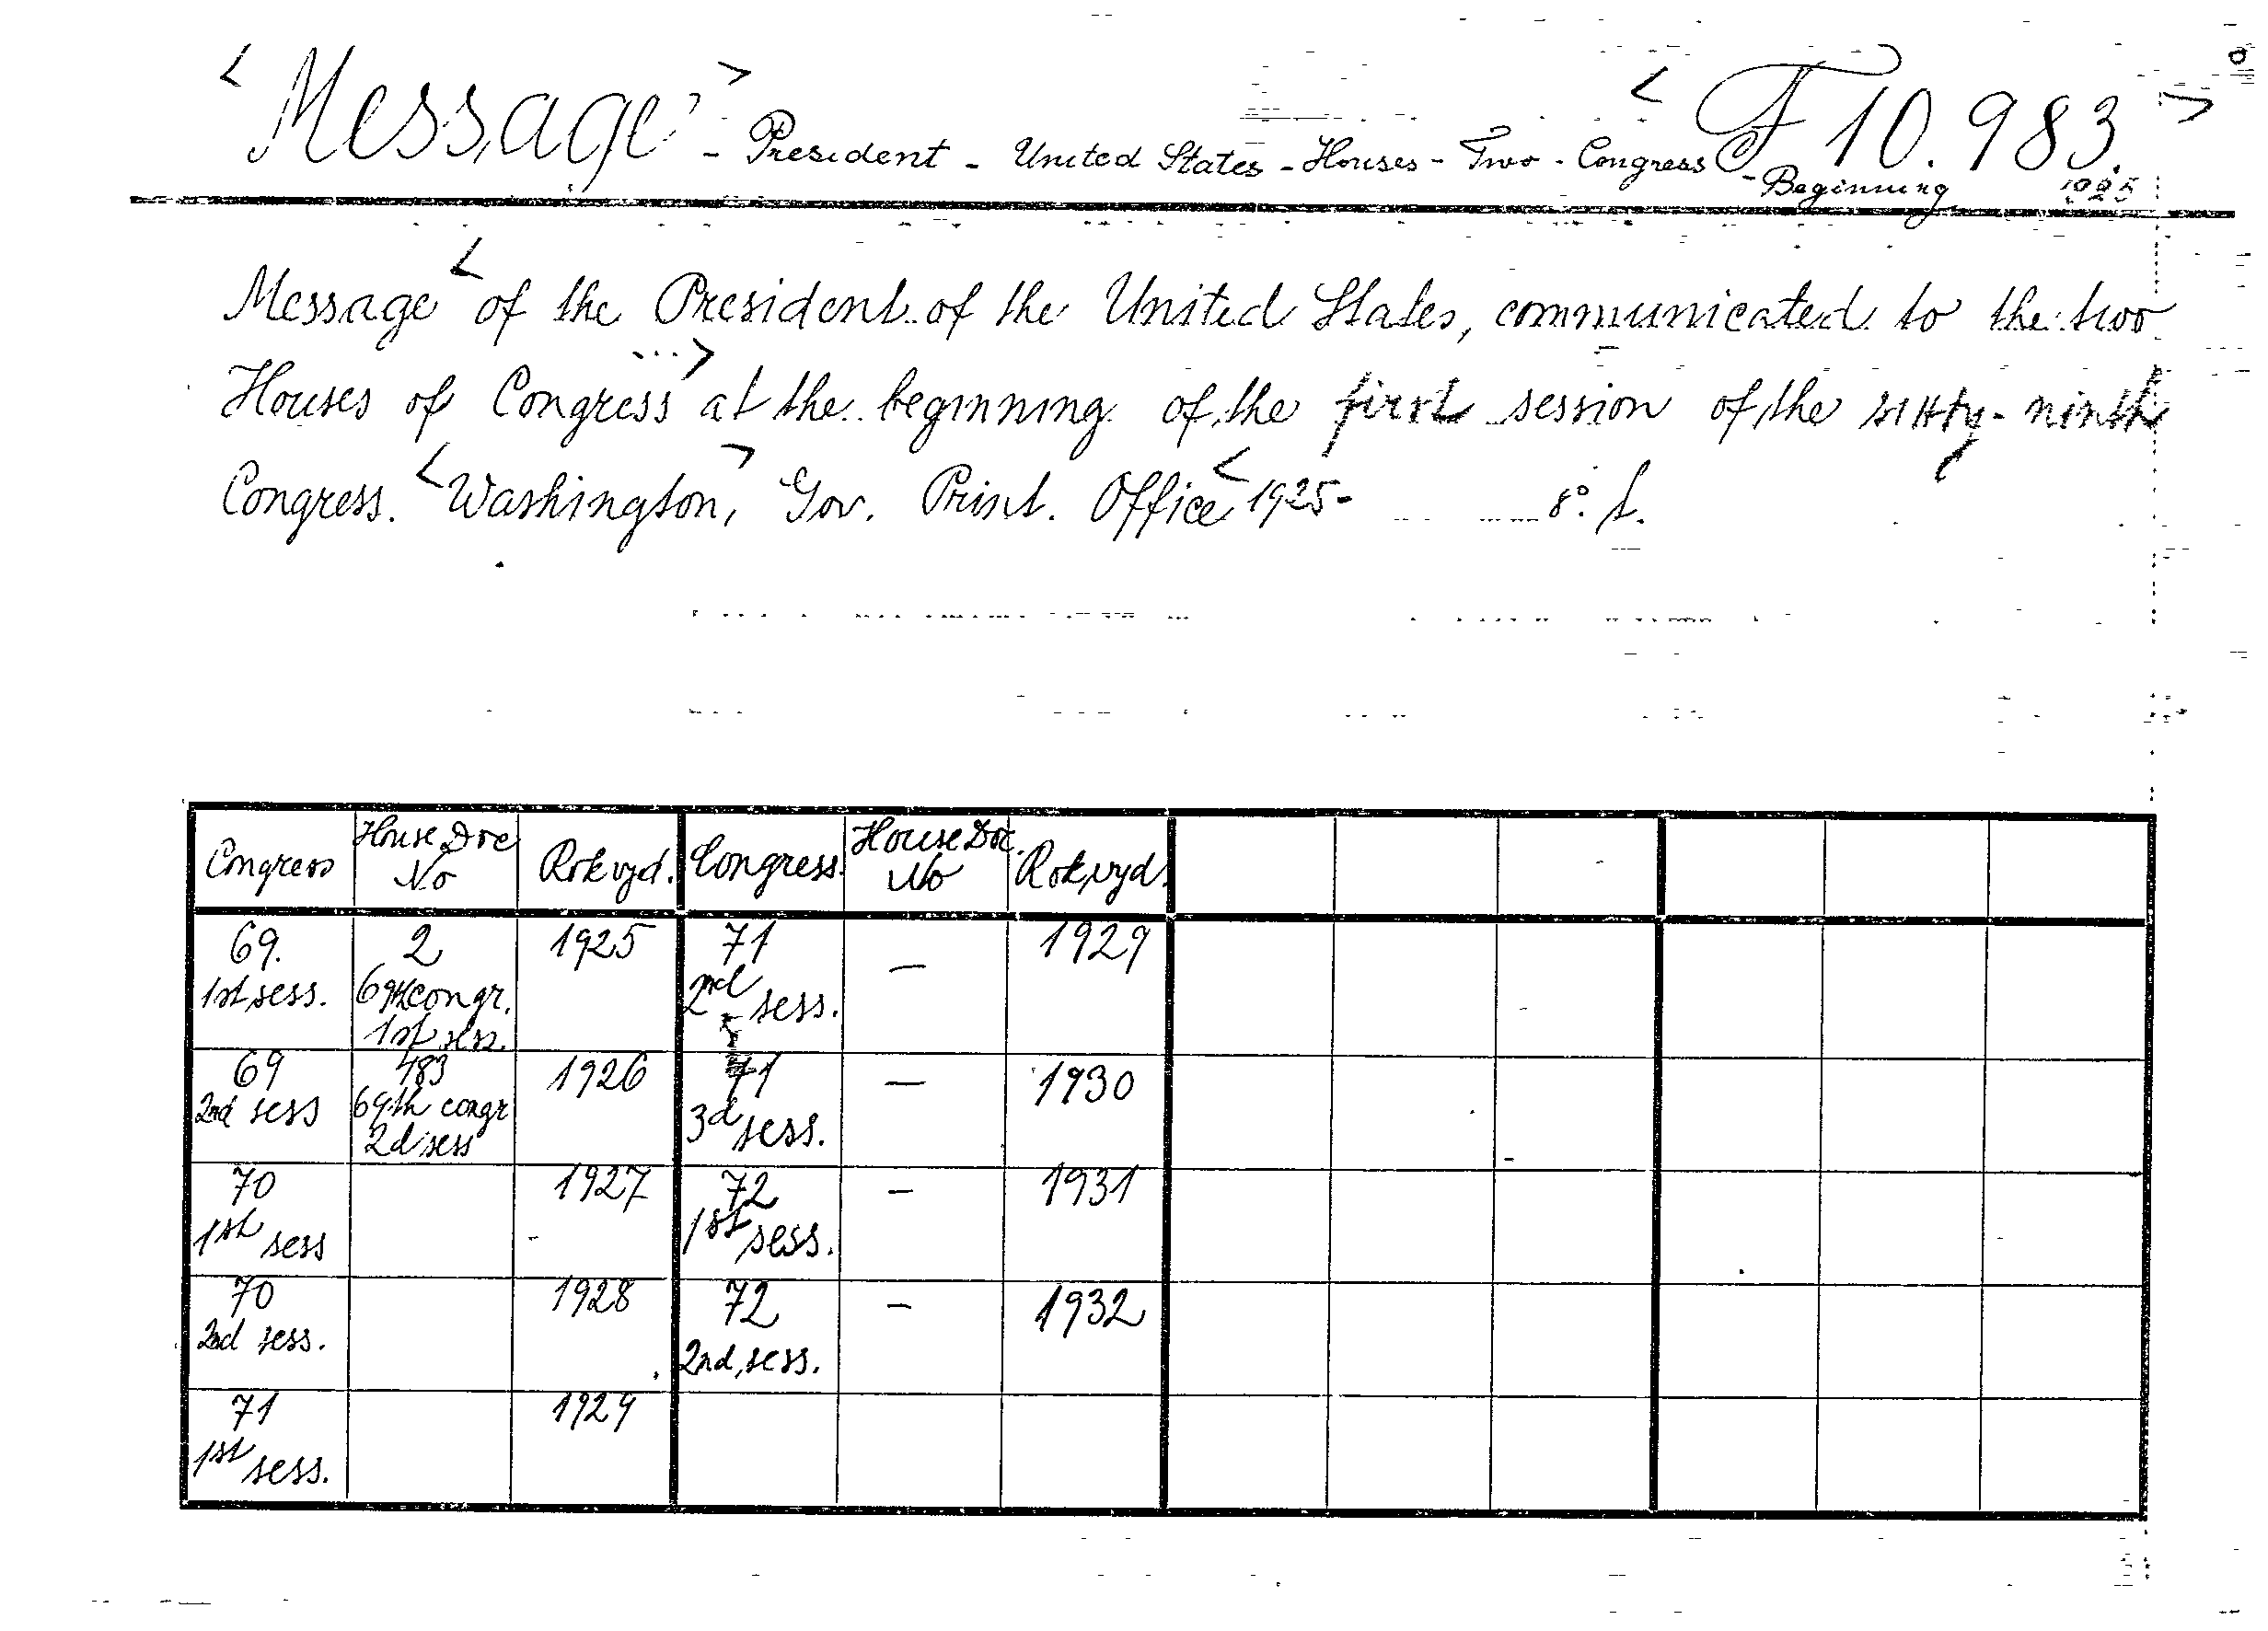 <Message> - President - United States - Houses - Two - Congress <F 10.983.>
- Beginning 1925
Message <of the President of the United States, communicated to the two
Houses of Congress ...> at the beginning of the first session of the sixty-ninth
Congress. <Washington,> Gov. Print. Office <1925- 8°. f.
Congress House Doc No Rok vyd. Congress. House Doc. No Rok vyd.
69. 2 1925 71 — 1929
1st sess. 69th congr. 2nd sess.
1st sess.
69 483 1926 71 — 1930
2nd sess 69th congr 3d sess.
2d sess
70 1927 72 - 1931
1st sess 1st sess.
70 1928 72 - 1932
2nd sess. 2nd sess.
71 1929
1st sess.